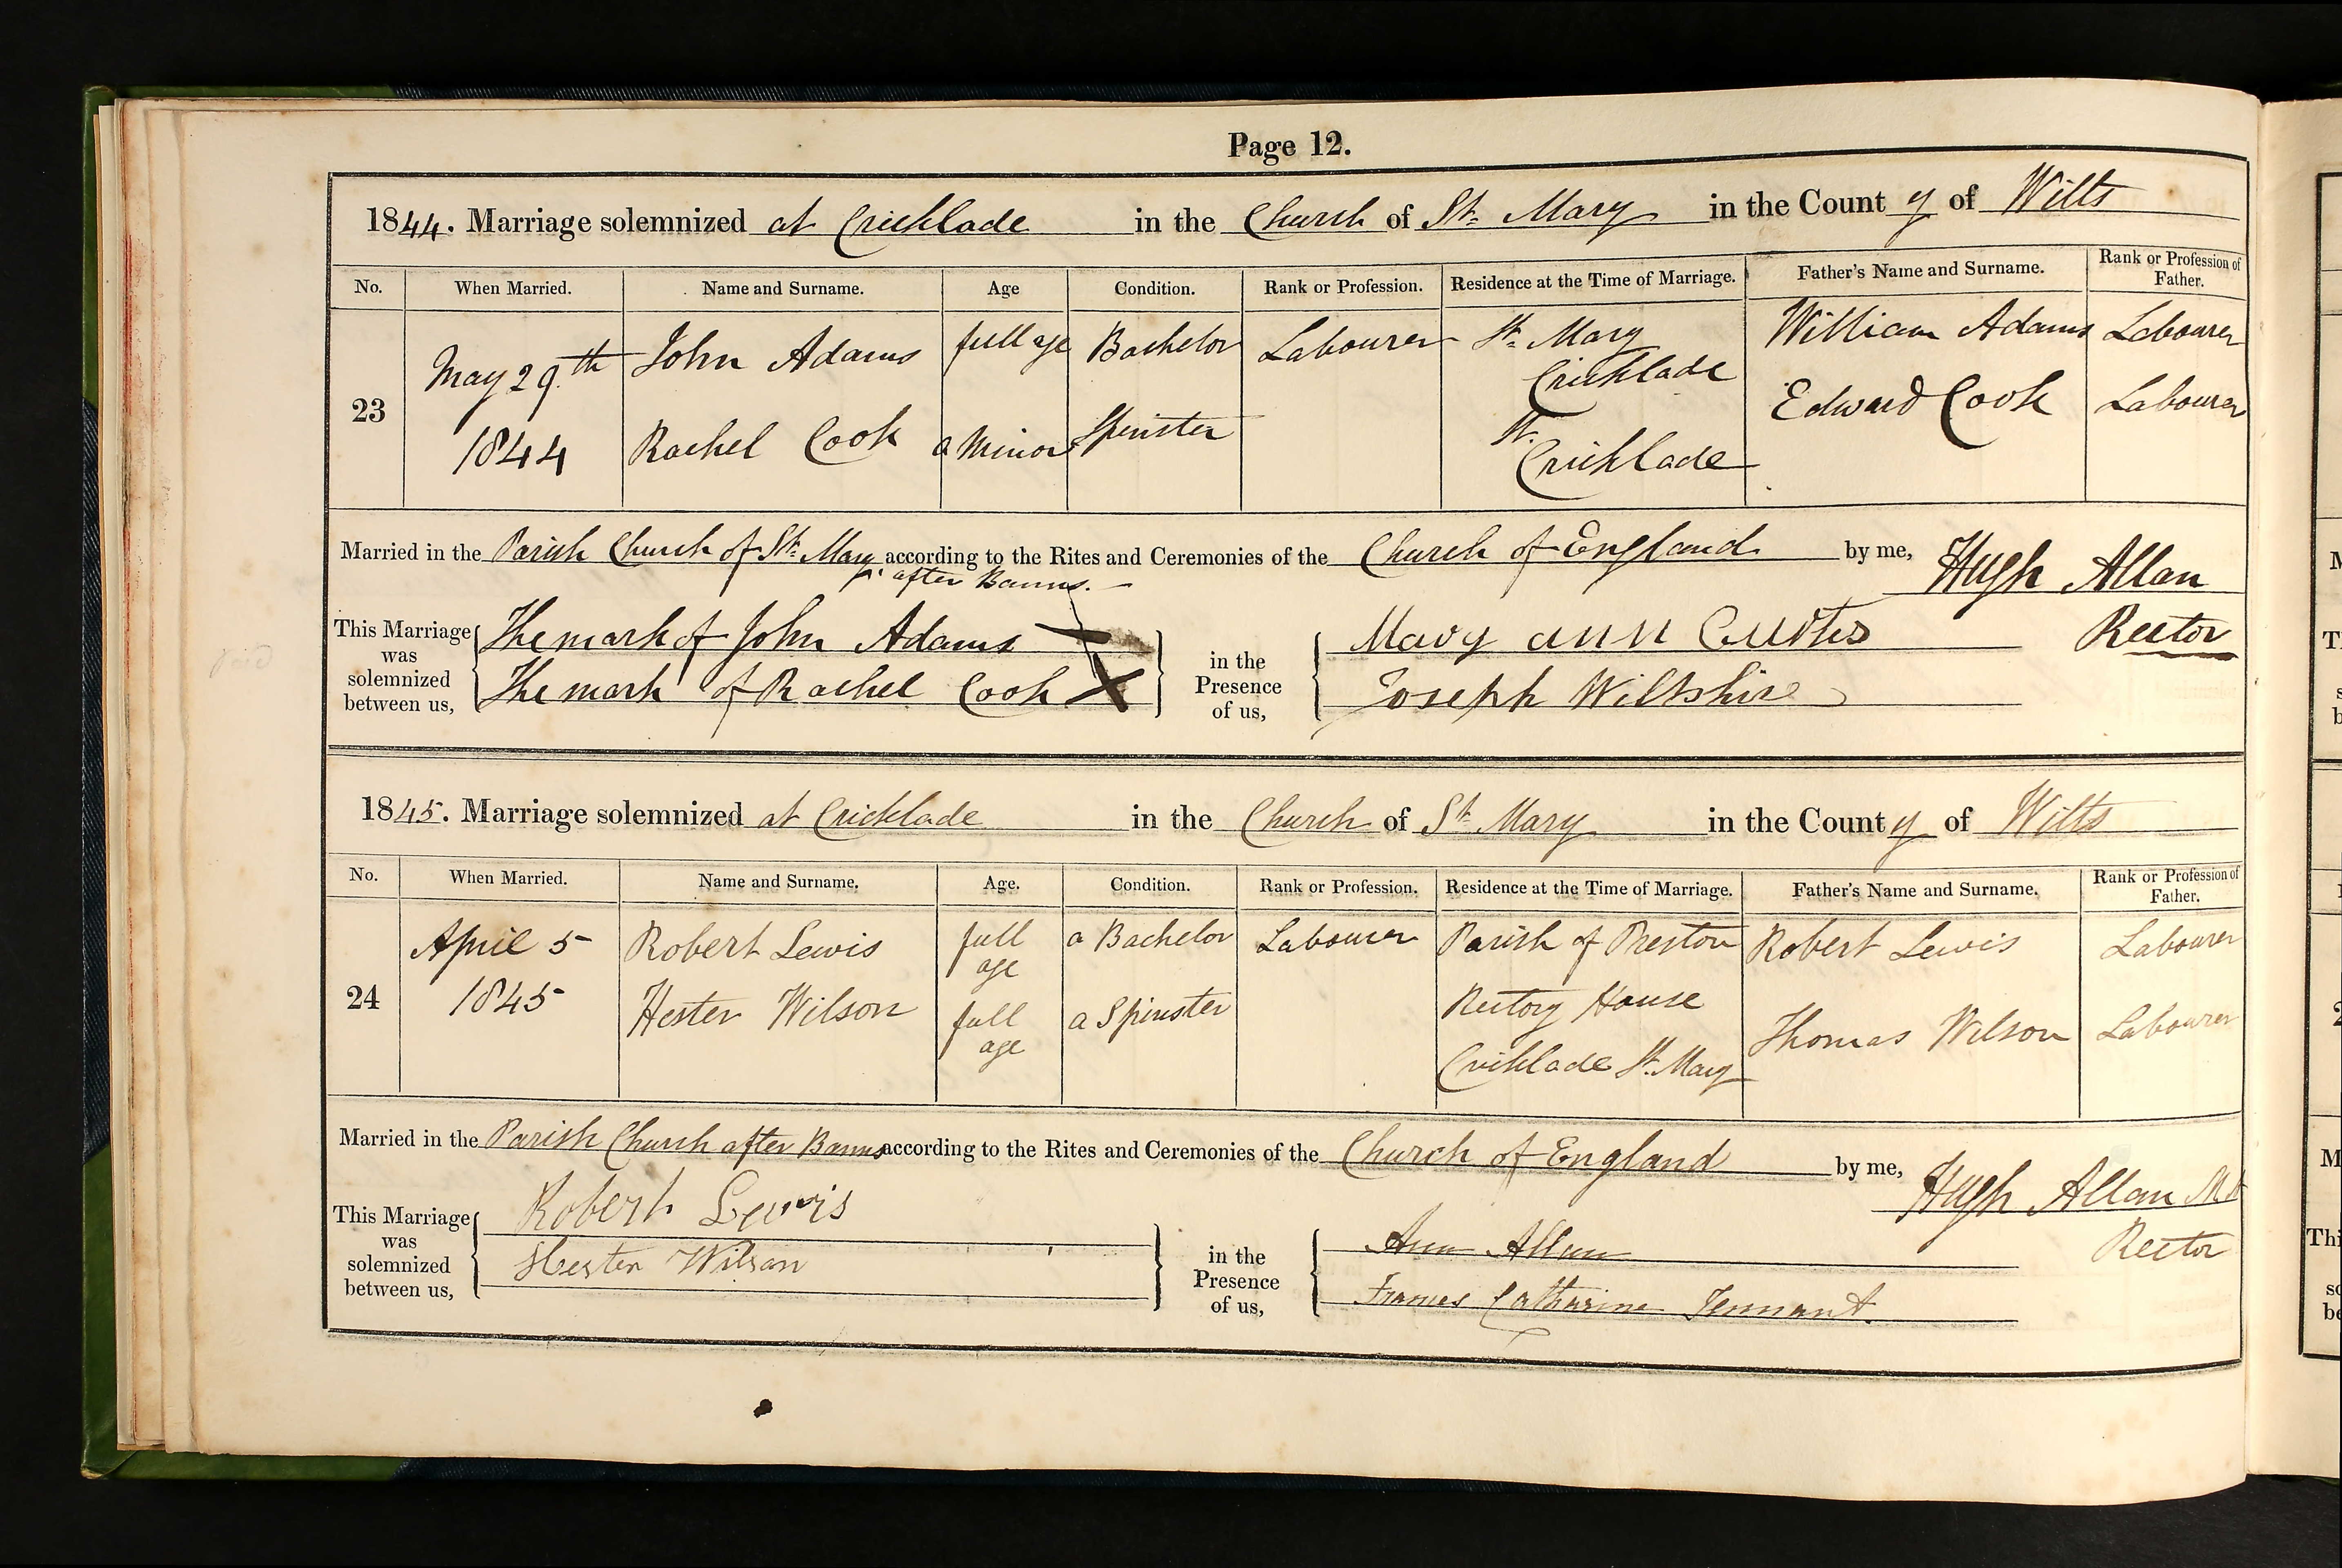 Page 12.
1844. Marriage solemnized at Cricklade in the Church of St. Mary in the County of Wilts
No. When Married. Name and Surname. Age Condition. Rank or Profession. Residence at the Time of Marriage. Father's Name and Surname. Rank or Profession of Father.
23 May 29th 1844 John Adams full age Bachelor Labourer St. Mary Cricklade William Adams Labourer
Rachel Cook a Minor Spinster St. Cricklade Edward Cook Labourer
Married in the Parish Church of St. Mary according to the Rites and Ceremonies of the Church of England by me, Hugh Allan
after Banns.
Rector
This Marriage was solemnized between us, The mark of John Adams X in the Presence of us, Mary ann Curtis
The mark of Rachel Cook X Joseph Wiltshire
1845. Marriage solemnized at Cricklade in the Church of St Mary in the County of Wilts
No. When Married. Name and Surname. Age. Condition. Rank or Profession. Residence at the Time of Marriage. Father's Name and Surname. Rank or Profession of Father.
24 April 5 1845 Robert Lewis full age a Bachelor Labourer Parish of Preston Robert Lewis Labourer
Hester Wilson full age a Spinster Rectory House Cricklade St. Mary Thomas Wilson Labourer
Married in the Parish Church after Banns according to the Rites and Ceremonies of the Church of England by me, Hugh Allan
Rector
This Marriage was solemnized between us, Robert Lewis in the Presence of us, Ann Allan
Hester Wilson Frances Catharine Tennant.